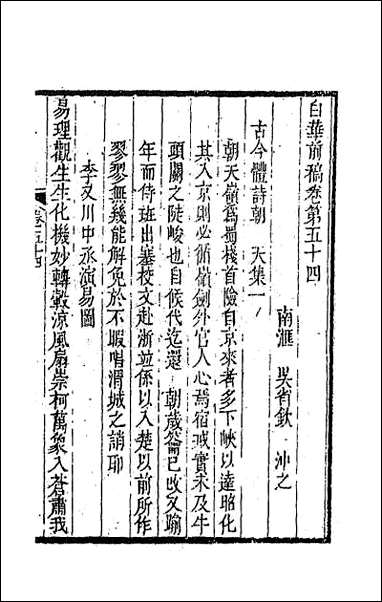 白華前稿卷第五十四
南滙 吳省欽 沖之
古今體詩朝 天集一
朝天嶺爲蜀棧首險自京來者多下峽以達昭化
其入京則必循嶺劍外官人心焉宿戒實未及牛
頭關之陡峻也自候代迄還 朝歲籥已改又踰
年而侍班出華校文赴浙並係以入楚以前所作
寥寥無幾能解免於不暇唱渭城之誚耶
李又川中丞演易圖
易理觀生生化機妙轉轂涼風扇崇柯萬象入蒼肅我
卷五十四